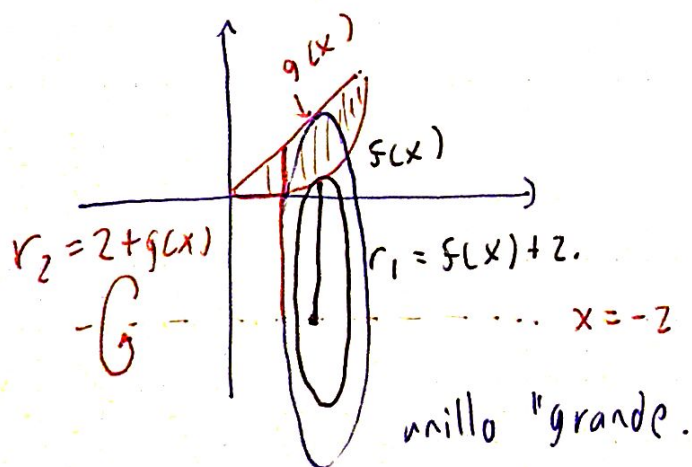 g(x)
f(x)
r₂ = 2+g(x)
r₁ = f(x)+2.
x = -2
anillo "grande.